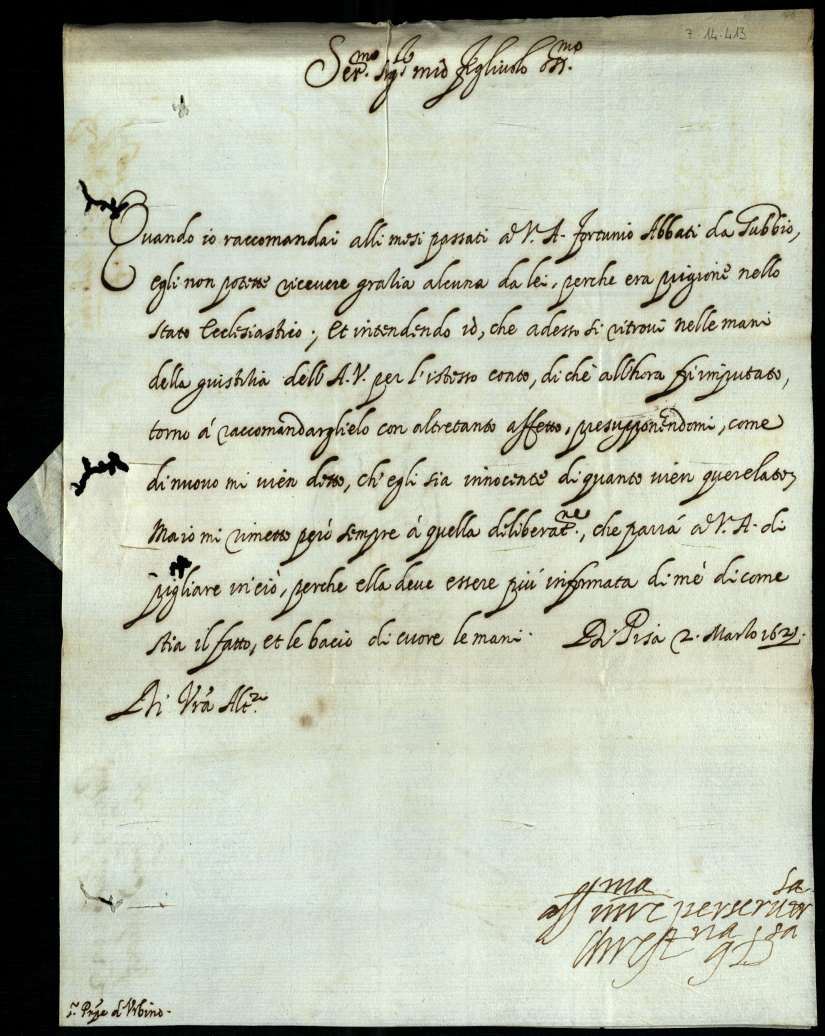 7-14-413
Ser.mo Sig.r mio figliuolo oss.mo
Quando io raccomandai alli mesi passati a V. A. fortunio Abbati da Gubbio,
egli non potette ricevere gratia alcuna da lei, perche era prigione nello
stato Ecclesiastico; Et intendendo io, che adesso si ritrovi nelle mani
della giustitia dell' A. V. per l'istesso conto, di che all'hora fu imputato,
torno á raccomandarglielo con altretanto affetto, presupponendomi, come
di nuovo mi vien detto, ch' egli sia innocente di quanto vien querelato,
Ma io mi rimetto però sempre á quella deliberat.ne, che parrá a V. A. di
pigliare in ciò, perche ella deve essere piú informata di mé di come
stia il fatto, et le bacio di cuore le mani. Di Pisa 2. Marzo 1621.
Di Vrã Alt.a
aff.ma
Chrest.na
s.r Prpe d'Urbino.